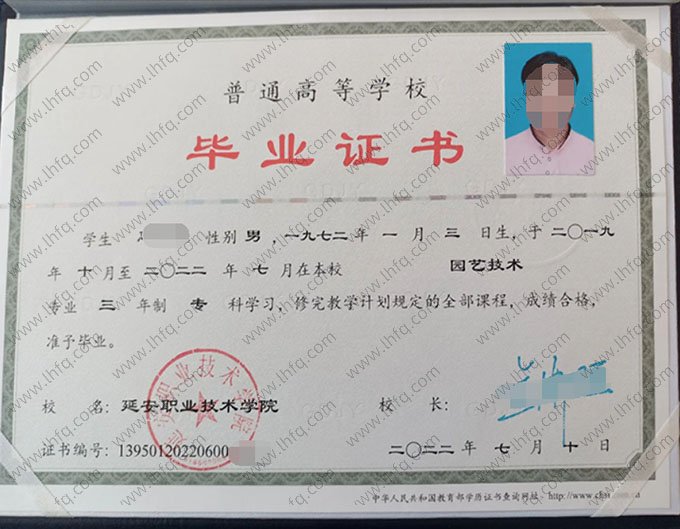 普通高等学校
毕业证书
学生 性别 男 ，一九七二 年 一 月 三 日生，于 二〇一九
年 十 月至 二〇二二 年 七 月在本校 园艺技术
专业 三 年制 专 科学习，修完教学计划规定的全部课程，成绩合格，
准予毕业。
校 名：延安职业技术学院 校 长：
延安职业技术学院
证书编号：13950120220600 二〇二二 年 七 月 十 日
中华人民共和国教育部学历证书查询网址：http://www.chsi.com.cn
www.lhfq.com